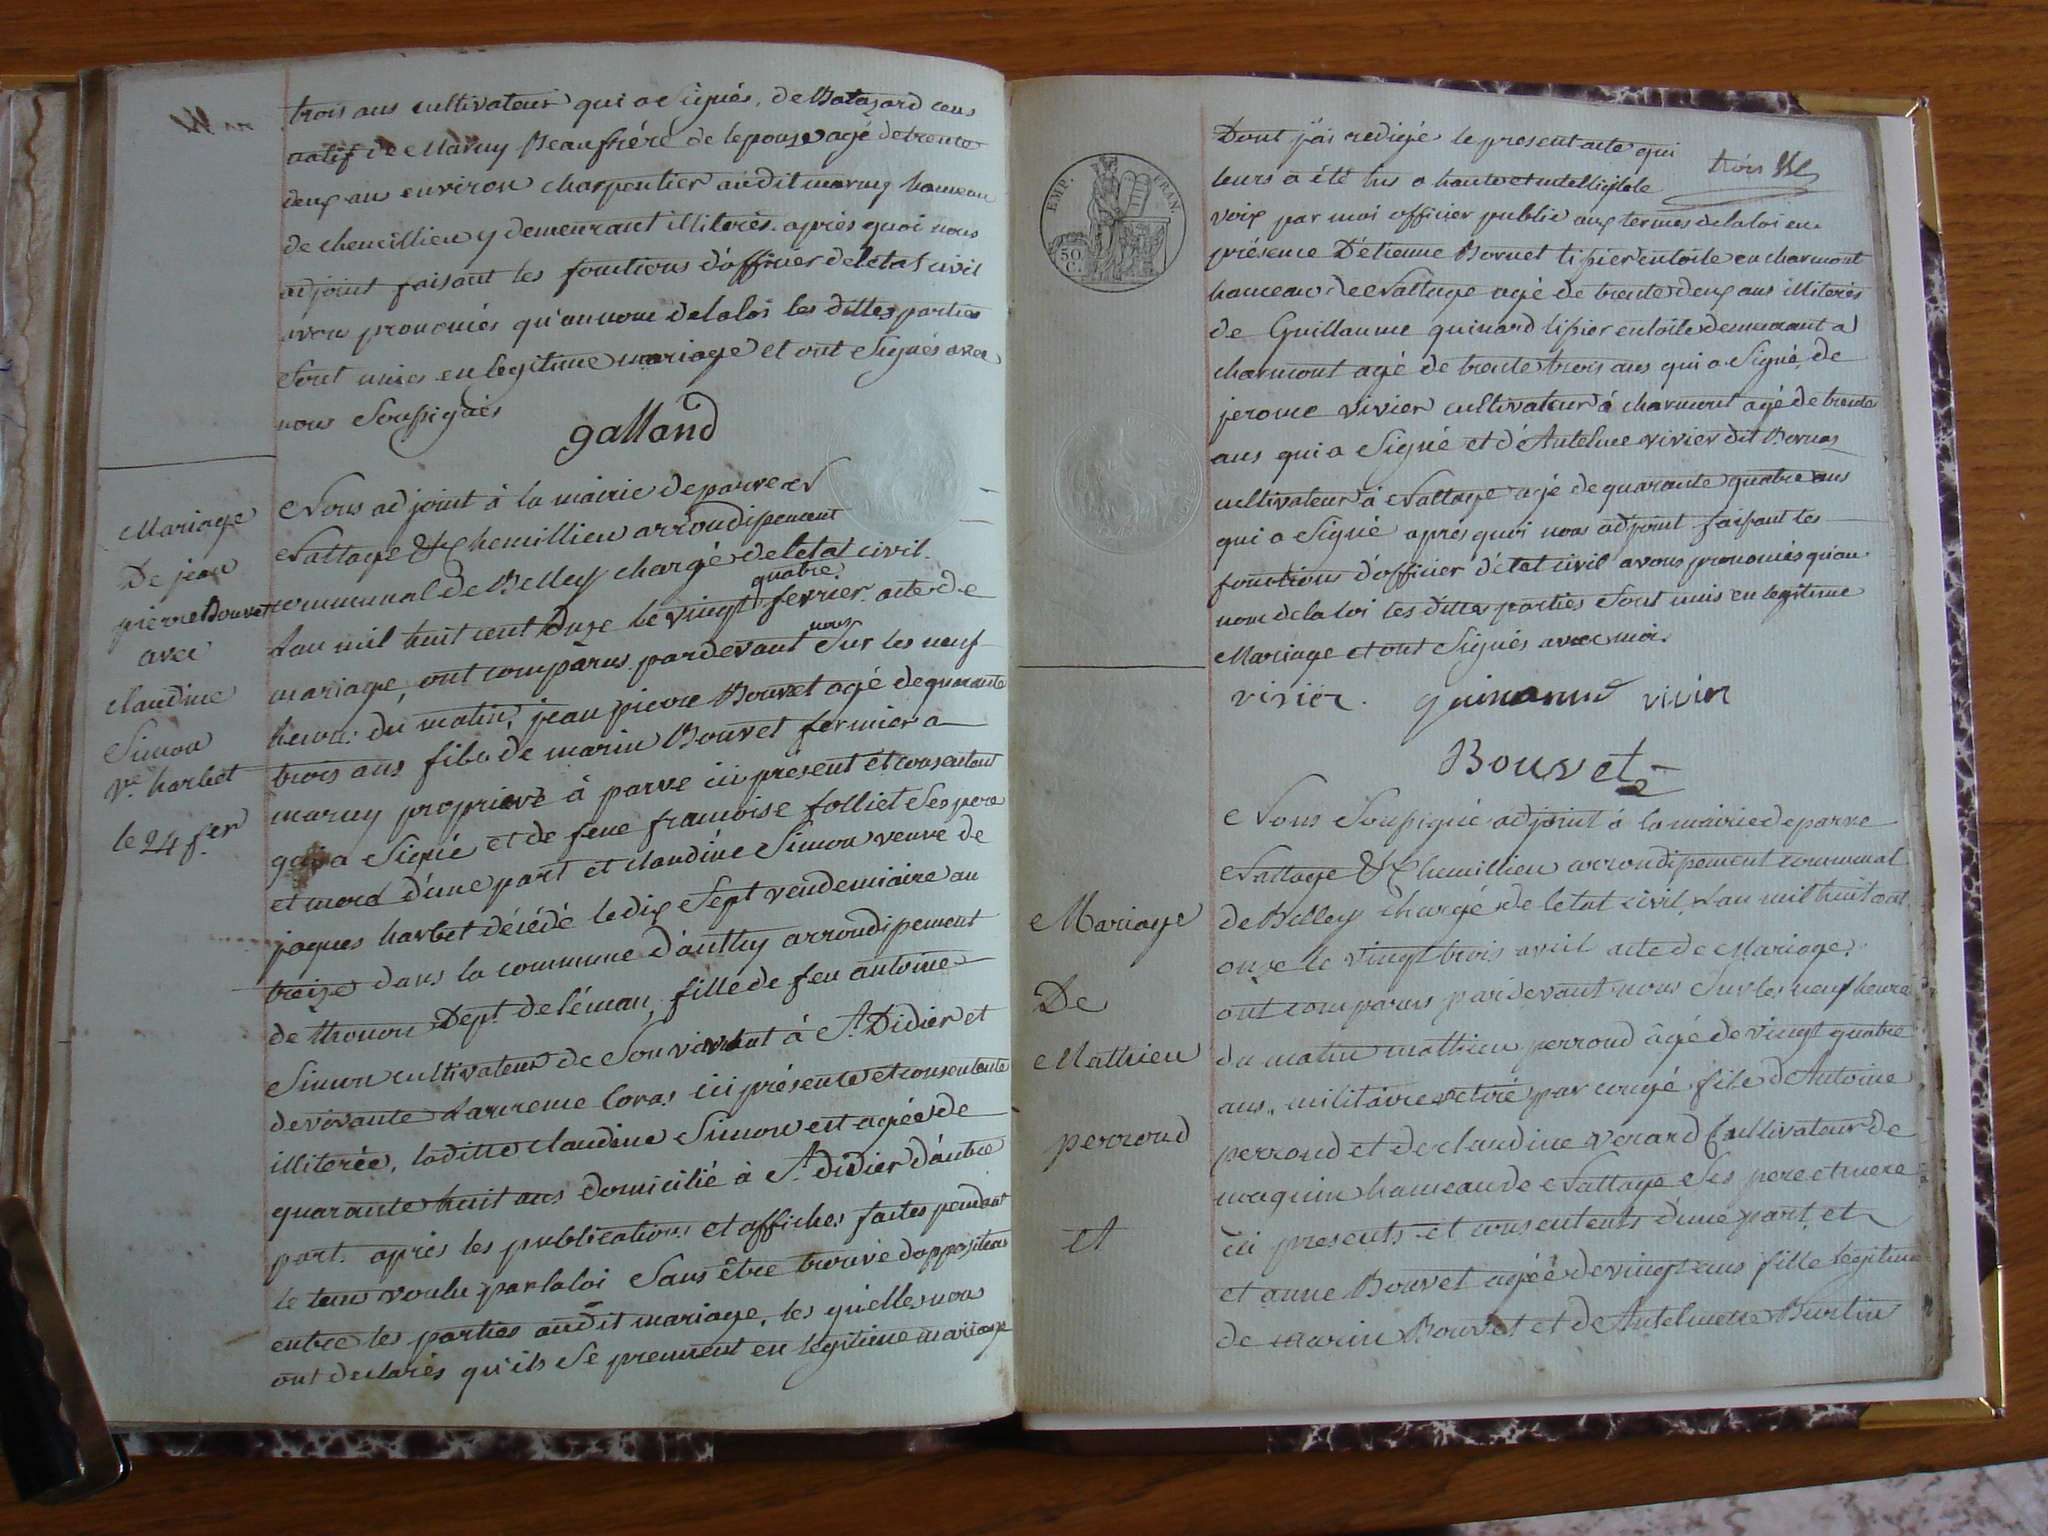 trois ans cultivateur qui a Signés, de Batazard
natif de Marny Beaufrére de lepouse agé de trente
deux ans environ charpentier audit marny hameau
de chemillieu y demeurant illiterés. aprés quoi nous
adjoint faisant les fonctions d'officier de letat civil
avons prononcés qu'au nom de la loi les dittes parties
Sont unies en legitime mariage et ont Signés avec
nous Soussignés
galland
Mariage
De jean
pierre Bouvet
avec
claudine
Simon
Ve. harbet
le 24 fer
Nous adjoint à la mairie de parves
Nattage & Chemillieu arrondissement
communal de Belley chargé de letat civil.
Lan mil huit cent onze le vingt quatre fevrier. acte de
mariage, ont comparus pardevant nous Sur les neuf
heures du matin, jean pierre Bouvet agé de quarante
trois ans fils de marin Bouvet fermier a
marny proprieré à parve ici present et consentant
qui a Signé et de feue francoise folliet Ses pere
et mere d'une part et claudine Simon veuve de
jaques harbet décédé le dix Sept vendemiaire an
treize dans la commune d'anthy arrondissement
de thonon Dept. de léman, fille de feu antoine
Simon cultivateur de Son vivant à St. Didier et
de vivante Laurence Coras ici présente et consentante
illiterée, laditte claudine Simon est agée de
quarante huit ans domicilié à St. didier d'autre
part. aprés les publications et affiches faites pendant
le tems voulu par la loi Sans être trouvé d'opposition
entre les parties audit mariage, les quelles nous
ont declarés qu'ils Se prennent en legitime mariage
trois
EMP. FRAN.
50 C.
Dont j'ai redigé le present acte qui
leurs a été lus a haute et intelligible
voix par moi officier public aux termes de la loi en
présence D'étienne Bornet tissier en toile en charmont
hameau de Nattage agé de trente deux ans illiterés
de Guillaume guinard tissier en toile demeurant a
charmont agé de trente trois ans qui a Signé, de
jerome vivier cultivateur à charmont agé de trente
ans qui a Signé et d'Antelme vivier dit Bornas
cultivateur à Nattage agé de quarante quatre ans
qui a Signé aprés quoi nous adjoint faisant les
fonctions d'officier d'état civil avons prononcés qu'au
nom de la loi les dittes parties Sont unis en legitime
Mariage et ont Signés avec moi.
vivier. guinannd vivier
Bouvet
Mariage
De
Mathieu
perroud
et
Nous Soussigné adjoint à la mairie de parve
Nattage & Chemillieu arrondissement communal
de Belley chargé de letat civil. Lan mil huit cent
onze le vingt trois avril acte de Mariage.
ont comparus pardevant nous Sur les neuf heures
du matin mathieu perroud âgé de vingt quatre
ans, militaire retiré par congé fils d'Antoine
perroud et de claudine venard Cultivateur de
maquin hameau de Nattage Ses pere et mere
ici presents et consentents d'une part, et
et anne Bouvet agée de vingt ans fille legitime
de marin Bouvet et d'Antelmette Burtin